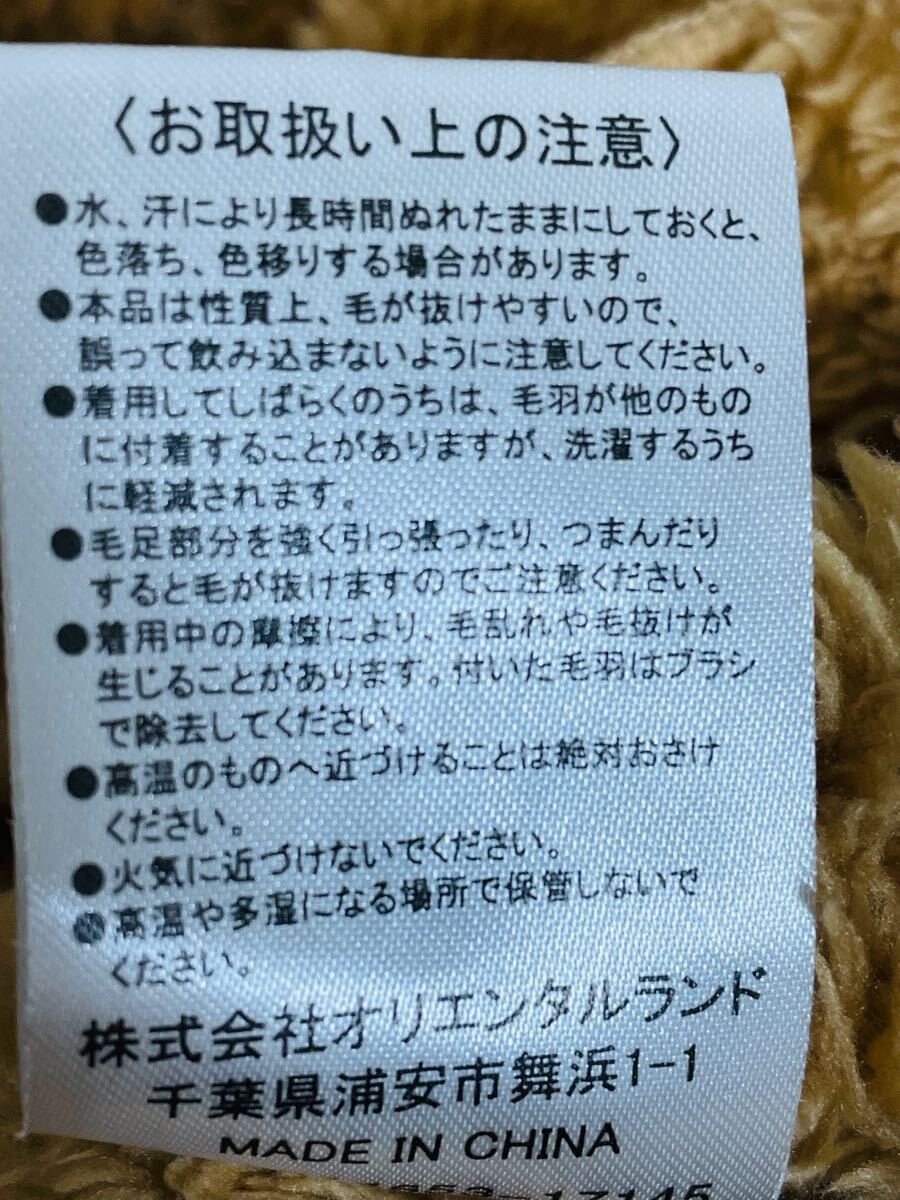 〈お取扱い上の注意〉
●水、汗により長時間ぬれたままにしておくと、
色落ち、色移りする場合があります。
●本品は性質上、毛が抜けやすいので、
誤って飲み込まないように注意してください。
●着用してしばらくのうちは、毛羽が他のもの
に付着することがありますが、洗濯するうち
に軽減されます。
●毛足部分を強く引っ張ったり、つまんだり
すると毛が抜けますのでご注意ください。
●着用中の摩擦により、毛乱れや毛抜けが
生じることがあります。付いた毛羽はブラシ
で除去してください。
●高温のものへ近づけることは絶対おさけ
ください。
●火気に近づけないでください。
●高温や多湿になる場所で保管しないで
ください。
株式会社オリエンタルランド
千葉県浦安市舞浜1-1
MADE IN CHINA